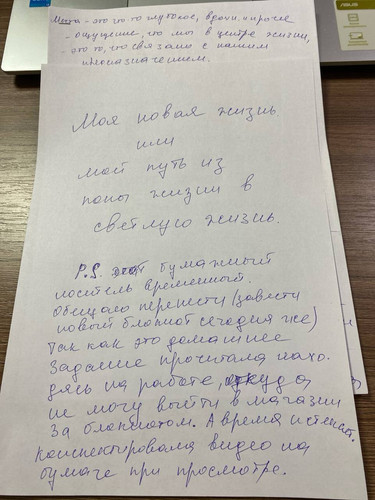 Мечта - это что-то глубокое,
- ощущение, что мы в центре жизни,
- это то, что связано с нашим
предназначением.
Моя новая жизнь
или
мой путь из
попы жизни в
светлую жизнь.
P.S. этот бумажный
носитель временный.
Обещаю перенести (завести
новый блокнот сегодня же)
Так как это домашнее
задание прочитала нахо-
дясь на работе, откуда
не могу выйти в магазин
за блокнотом. А время истекает.
конспектировала видео на
бумаге при просмотре.
ASUS